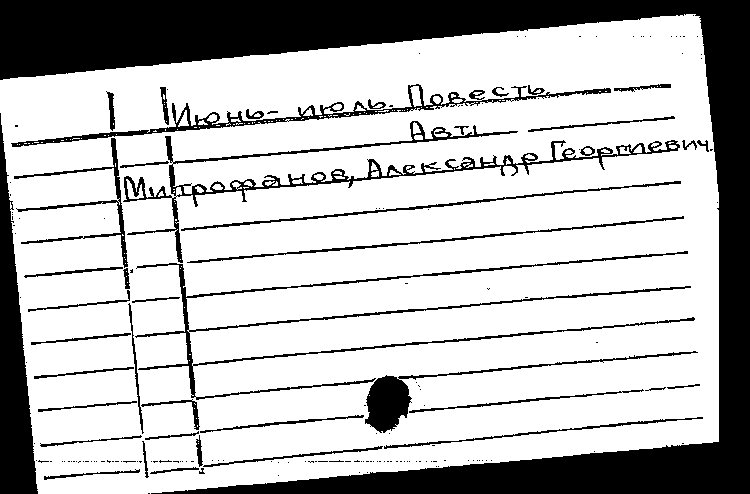 Июнь- июль. Повесть.
Авт.
Митрофанов, Александр Георгиевич.